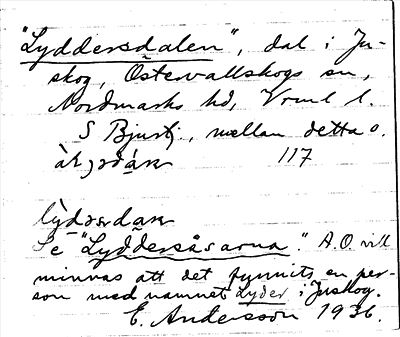 "Lyddersdalen", dal i Ju-
skog, Östervallskogs sn,
Nordmarks hd, Vrml l.
S Bjurbj, mellan detta o.
117
Se "Lyddersåsarna." A.O. vill
minnas att det funnits en per-
son med namnet Lyder i Juskog.
E. Andersson 1936.